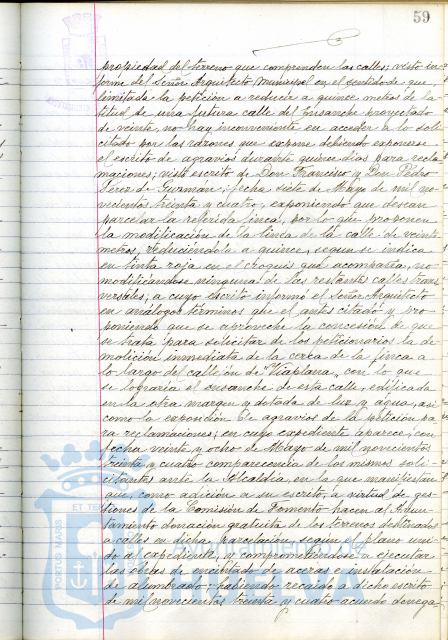 59
propiedad del terreno que comprenden las calles; visto in-
forme del Señor Arquitecto Municipal en el sentido de que
limitada la petición a reducir a quince metros de la
titud de una futura calle del Ensanche proyectado
de veinte, no hay inconveniente en acceder a lo soli
citado por las razones que expone debiendo exponerse
el escrito de agravios durante quince dias para recla
maciones; visto escrito de Don Francisco y Don Pedro
Perez de Guzman, fecha siete de Mayo de mil no-
vecientos treinta y cuatro, exponiendo que desean
parcelar la referida finca, por lo que proponen
la modificación de la linea de la calle de veinte
metros, reduciéndola a quince, segun se indica
en tinta roja en el croquis que acompaña, no
modificándose ninguna de las restantes calles trans
versales; a cuyo escrito informó el Señor Arquitecto
en análogos términos que el antes citado y pro
poniendo que se aproveche la concesión de que
se trata para solicitar de los peticionarios la de
molición inmediata de la cerca de la finca a
lo largo del callejón de Viaplana, con lo que
se lograría el ensanche de esta calle, edificada
en la otra margen y dotada de luz y agua, asi
como la exposición de agravios de la petición pa
ra reclamaciones; en cuyo expediente aparece, con
fecha veinte y ocho de Mayo de mil novecientos
treinta y cuatro comparecencia de los mismos soli-
citantes ante la Alcaldia, en la que manifiestan
que, como adición a su escrito, a virtud de ges-
tiones de la Comisión de Fomento hacen al Ayun-
tamiento donación gratuita de los terrenos destinados
a calles en dicha parcelación, según el plano uni
do al expediente, y comprometiéndose a ejecutar
las obras de encintado de aceras e instalación
de alumbrado; habiendo recaido a dicho escrito
de mil novecientos treinta y cuatro acuerdo denega-
PORTUS MARIS
ET TE